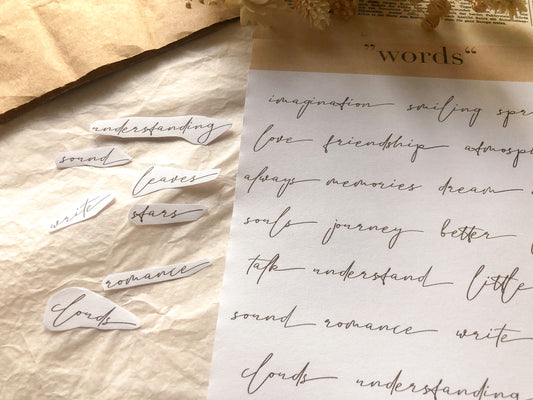 "words"
imagination smiling spr
love friendship atmosph
always memories dream
souls journey better
talk understand little
sound romance write
clouds understanding
understanding
sound
leaves
write
stars
romance
clouds